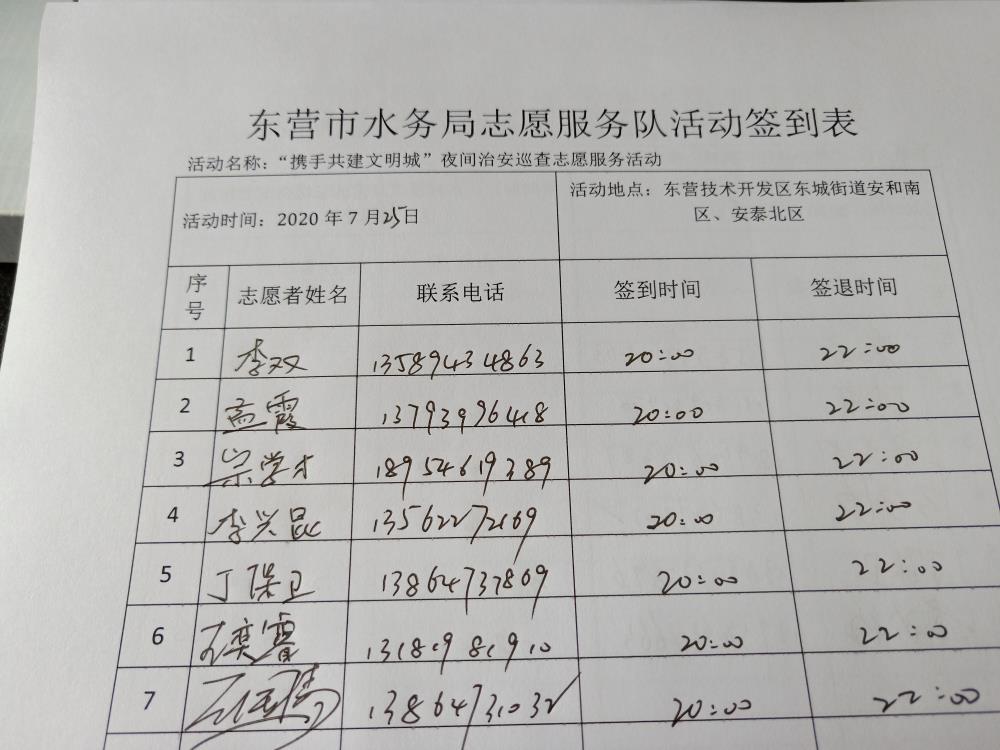 东营市水务局志愿服务队活动签到表
活动名称：“携手共建文明城”夜间治安巡查志愿服务活动
活动时间：2020 年 7 月25日
活动地点：东营技术开发区东城街道安和南
区、安泰北区
序号 志愿者姓名 联系电话 签到时间 签退时间
1 李双 13589434863 20:00 22:00
2 孟霞 13793996418 20:00 22:00
3 宗学才 18954619389 20:00 22:00
4 李兴昆 13562272169 20:00 22:00
5 丁保卫 13864737869 20:00 22:00
6 20:00 22:00
7 20:00 22:00